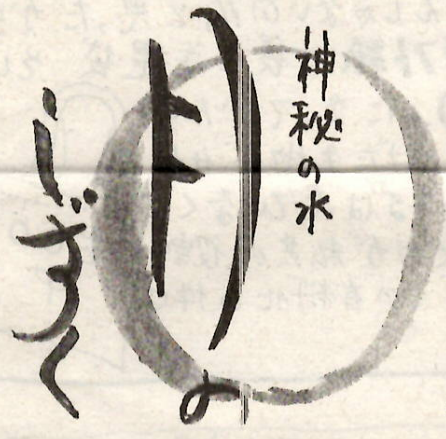 神秘の水
月の
しずく